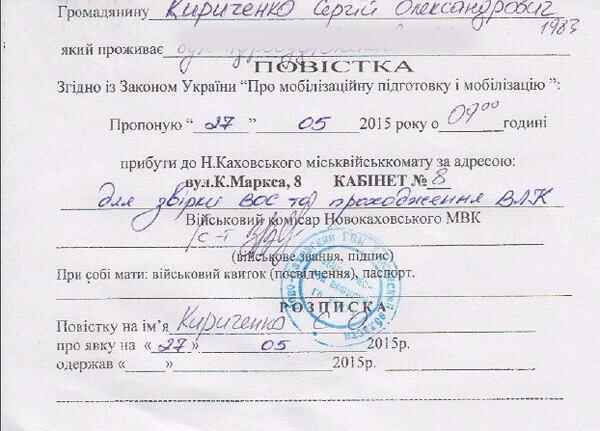 Громадянину Кириченко Сергій Олександрович
1983
який проживає
ПОВІСТКА
Згідно із Законом України “Про мобілізаційну підготовку і мобілізацію ”:
Пропоную “ 27 ” 05 2015 року о 09 00 годині
прибути до Н.Каховського міськвійсккомату за адресою:
вул.К.Маркса, 8 КАБІНЕТ № 8
для звірки ВОС та проходження ВЛК
Військовий комісар Новокаховського МВК
(військове звання, підпис)
При собі мати: військовий квиток (посвідчення), паспорт.
РОЗПИСКА
Повістку на ім’я Кириченко С О
про явку на « 27 » 05 2015р.
одержав «_____» 2015р.